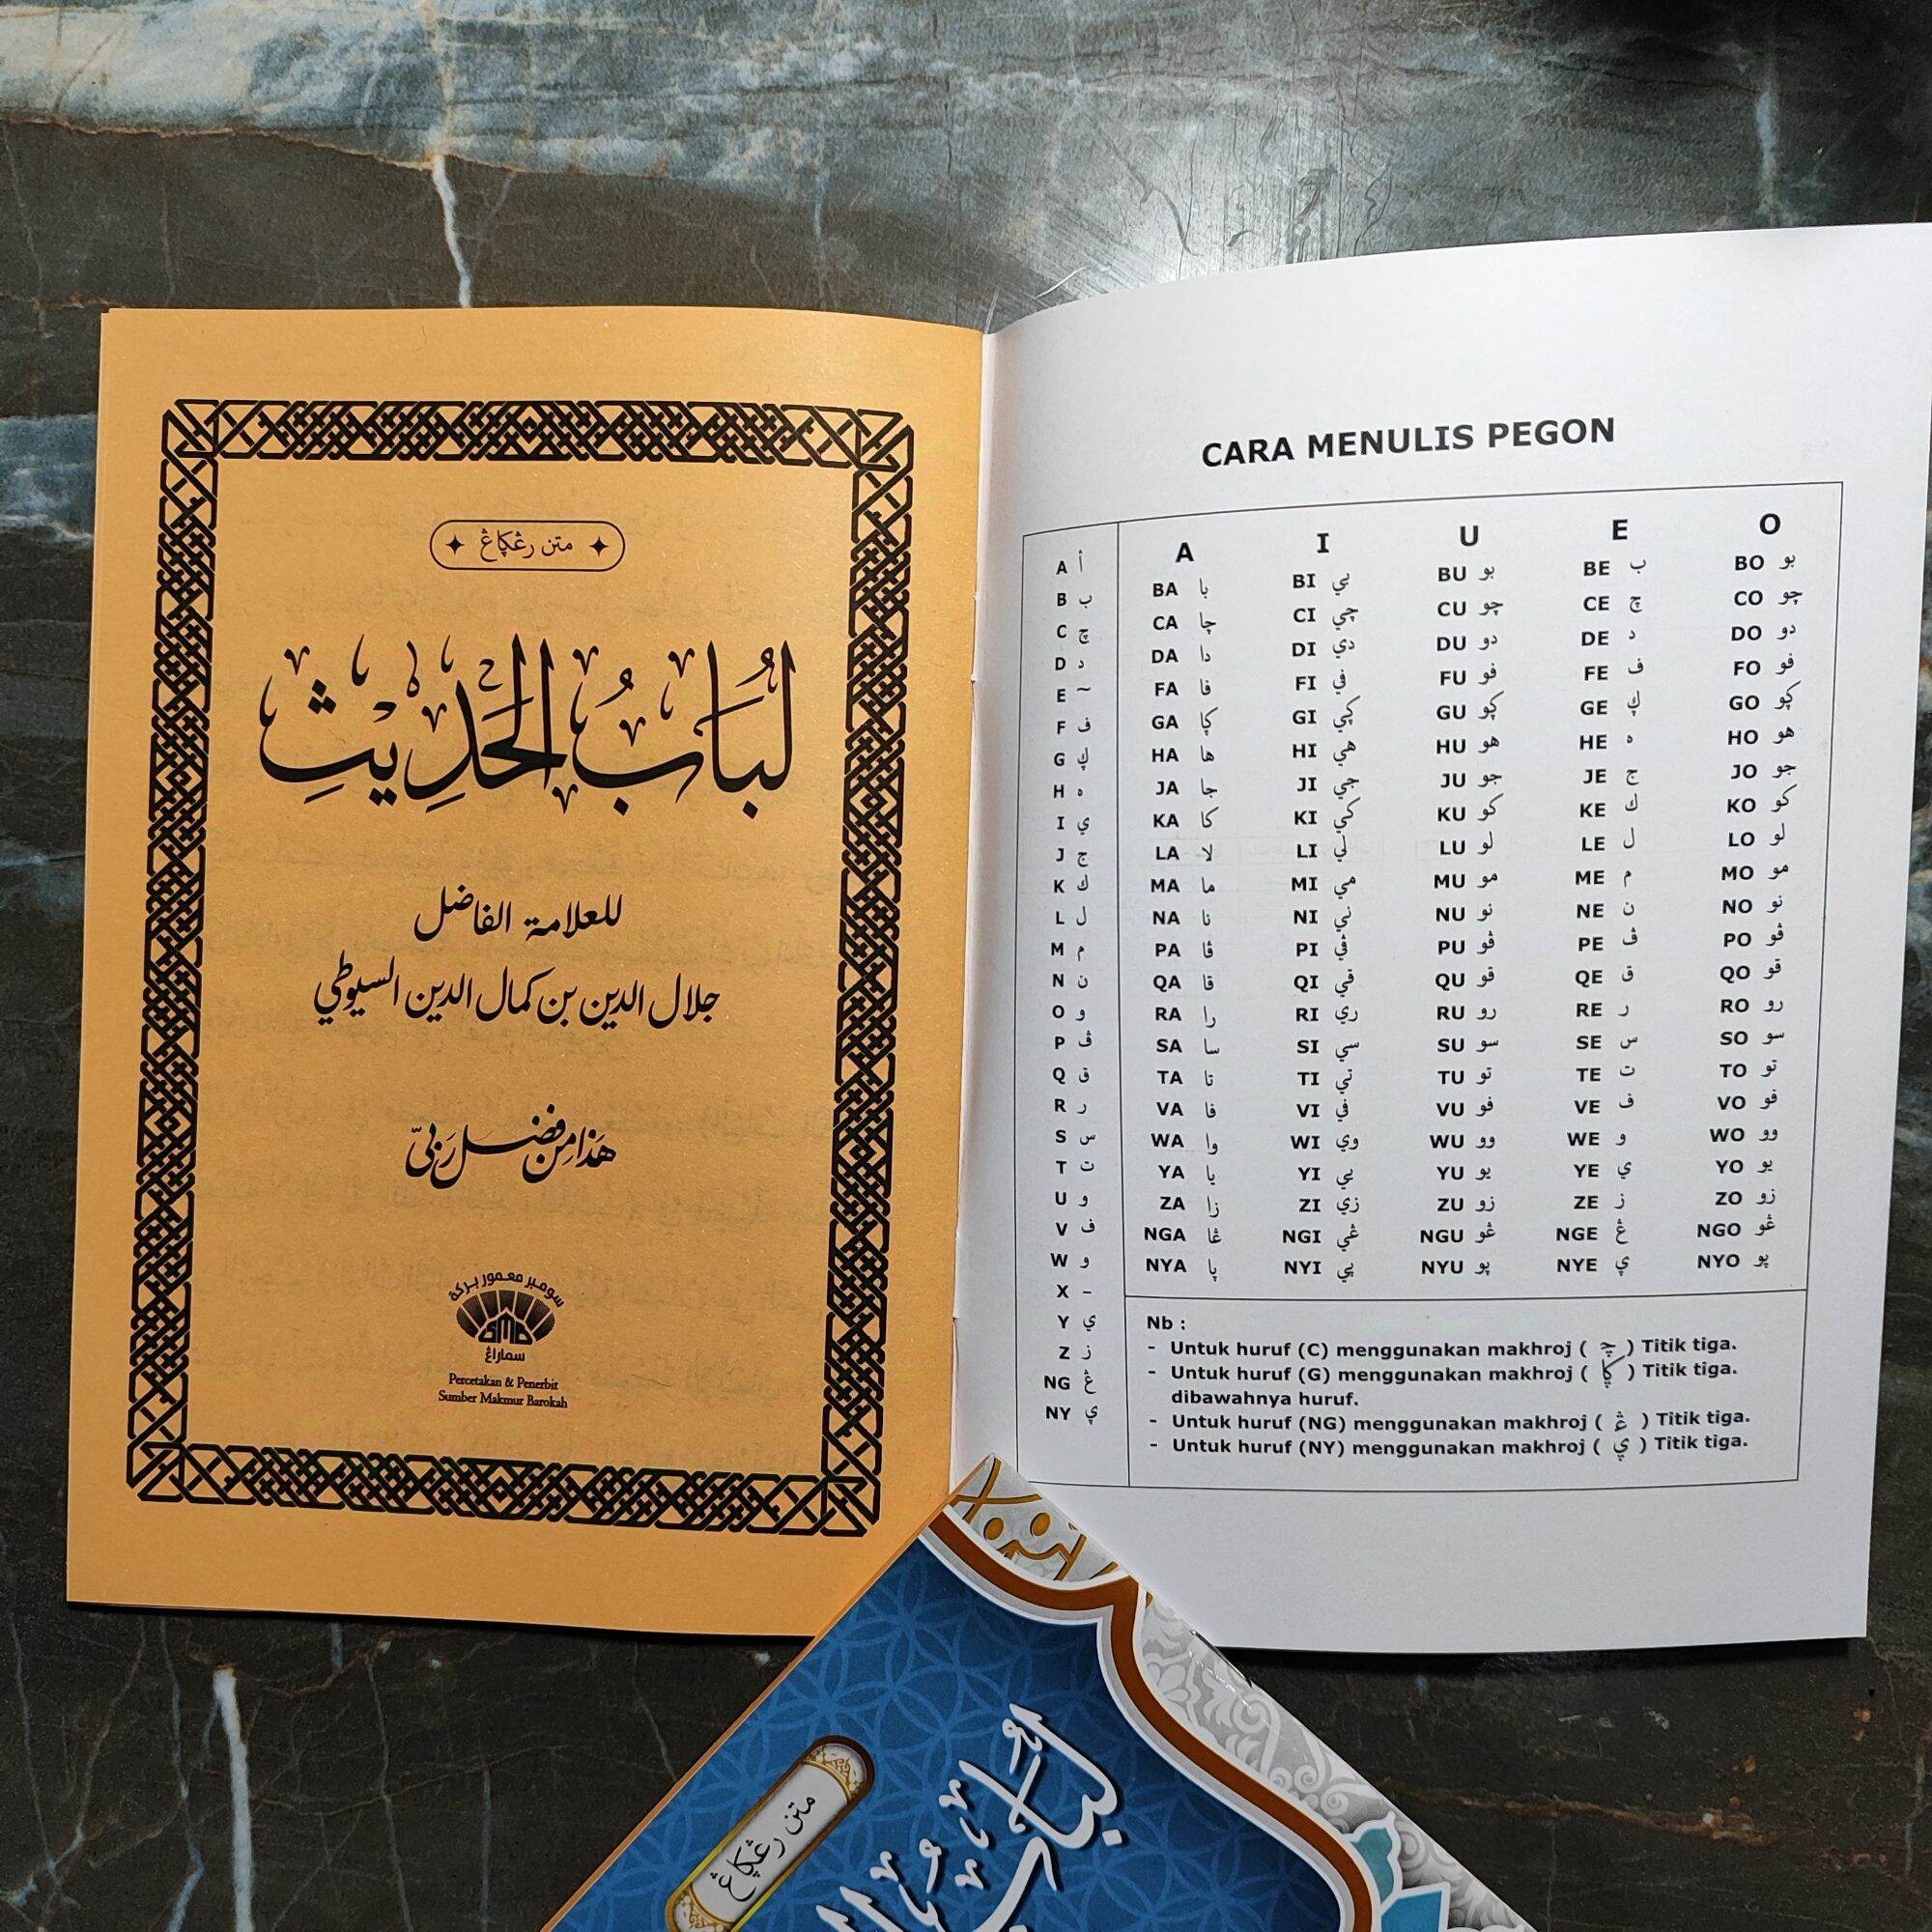 متن رڠكاڠ
لُبَابُ الْحَدِيْثِ
للعلامة الفاضل
جلال الدين بن كمال الدين السيوطي
هَذَا مِنْ فَضْلِ رَبِّيْ
سومبر معمور بركة
SMB
سماراڠ
Percetakan & Penerbit
Sumber Makmur Barokah
CARA MENULIS PEGON
A أ
B ب
C چ
D د
E ~
F ف
G ڮ
H ه
I ي
J ج
K ك
L ل
M م
N ن
O و
P ڤ
Q ق
R ر
S س
T ت
U و
V ف
W و
X -
Y ي
Z ز
NG ڠ
NY ۑ
A I U E O
BA با BI بي BU بو BE ب BO بو
CA چا CI چي CU چو CE چ CO چو
DA دا DI دي DU دو DE د DO دو
FA فا FI في FU فو FE ف FO فو
GA ڮا GI ڮي GU ڮو GE ڮ GO ڮو
HA ها HI هي HU هو HE ه HO هو
JA جا JI جي JU جو JE ج JO جو
KA كا KI كي KU كو KE ك KO كو
LA لا LI لي LU لو LE ل LO لو
MA ما MI مي MU مو ME م MO مو
NA نا NI ني NU نو NE ن NO نو
PA ڤا PI ڤي PU ڤو PE ڤ PO ڤو
QA قا QI قي QU قو QE ق QO قو
RA را RI ري RU رو RE ر RO رو
SA سا SI سي SU سو SE س SO سو
TA تا TI تي TU تو TE ت TO تو
VA فا VI في VU فو VE ف VO فو
WA وا WI وي WU وو WE و WO وو
YA يا YI يي YU يو YE ي YO يو
ZA زا ZI زي ZU زو ZE ز ZO زو
NGA ڠا NGI ڠي NGU ڠو NGE ڠ NGO ڠو
NYA ۑا NYI ۑي NYU ۑو NYE ۑ NYO ۑو
Nb :
- Untuk huruf (C) menggunakan makhroj ( چ ) Titik tiga.
- Untuk huruf (G) menggunakan makhroj ( ڮا ) Titik tiga.
dibawahnya huruf.
- Untuk huruf (NG) menggunakan makhroj ( ڠ ) Titik tiga.
- Untuk huruf (NY) menggunakan makhroj ( ۑ ) Titik tiga.
متن رڠكاڠ
لُبَابُ